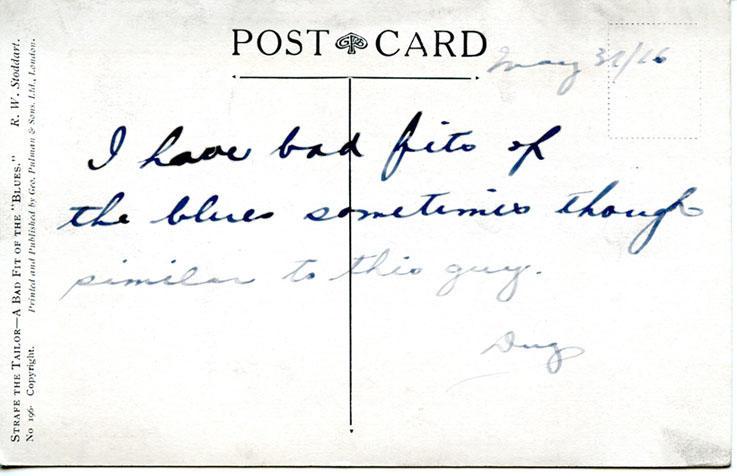 POST CARD
May 31/16
I have bad fits of
the blues sometimes though
similar to this guy.
STRAFE THE TAILOR—A BAD FIT OF THE "BLUES." R. W. Stoddart.
No 196 Copyright. Printed and Published by Geo. Pulman & Sons, Ltd., London.